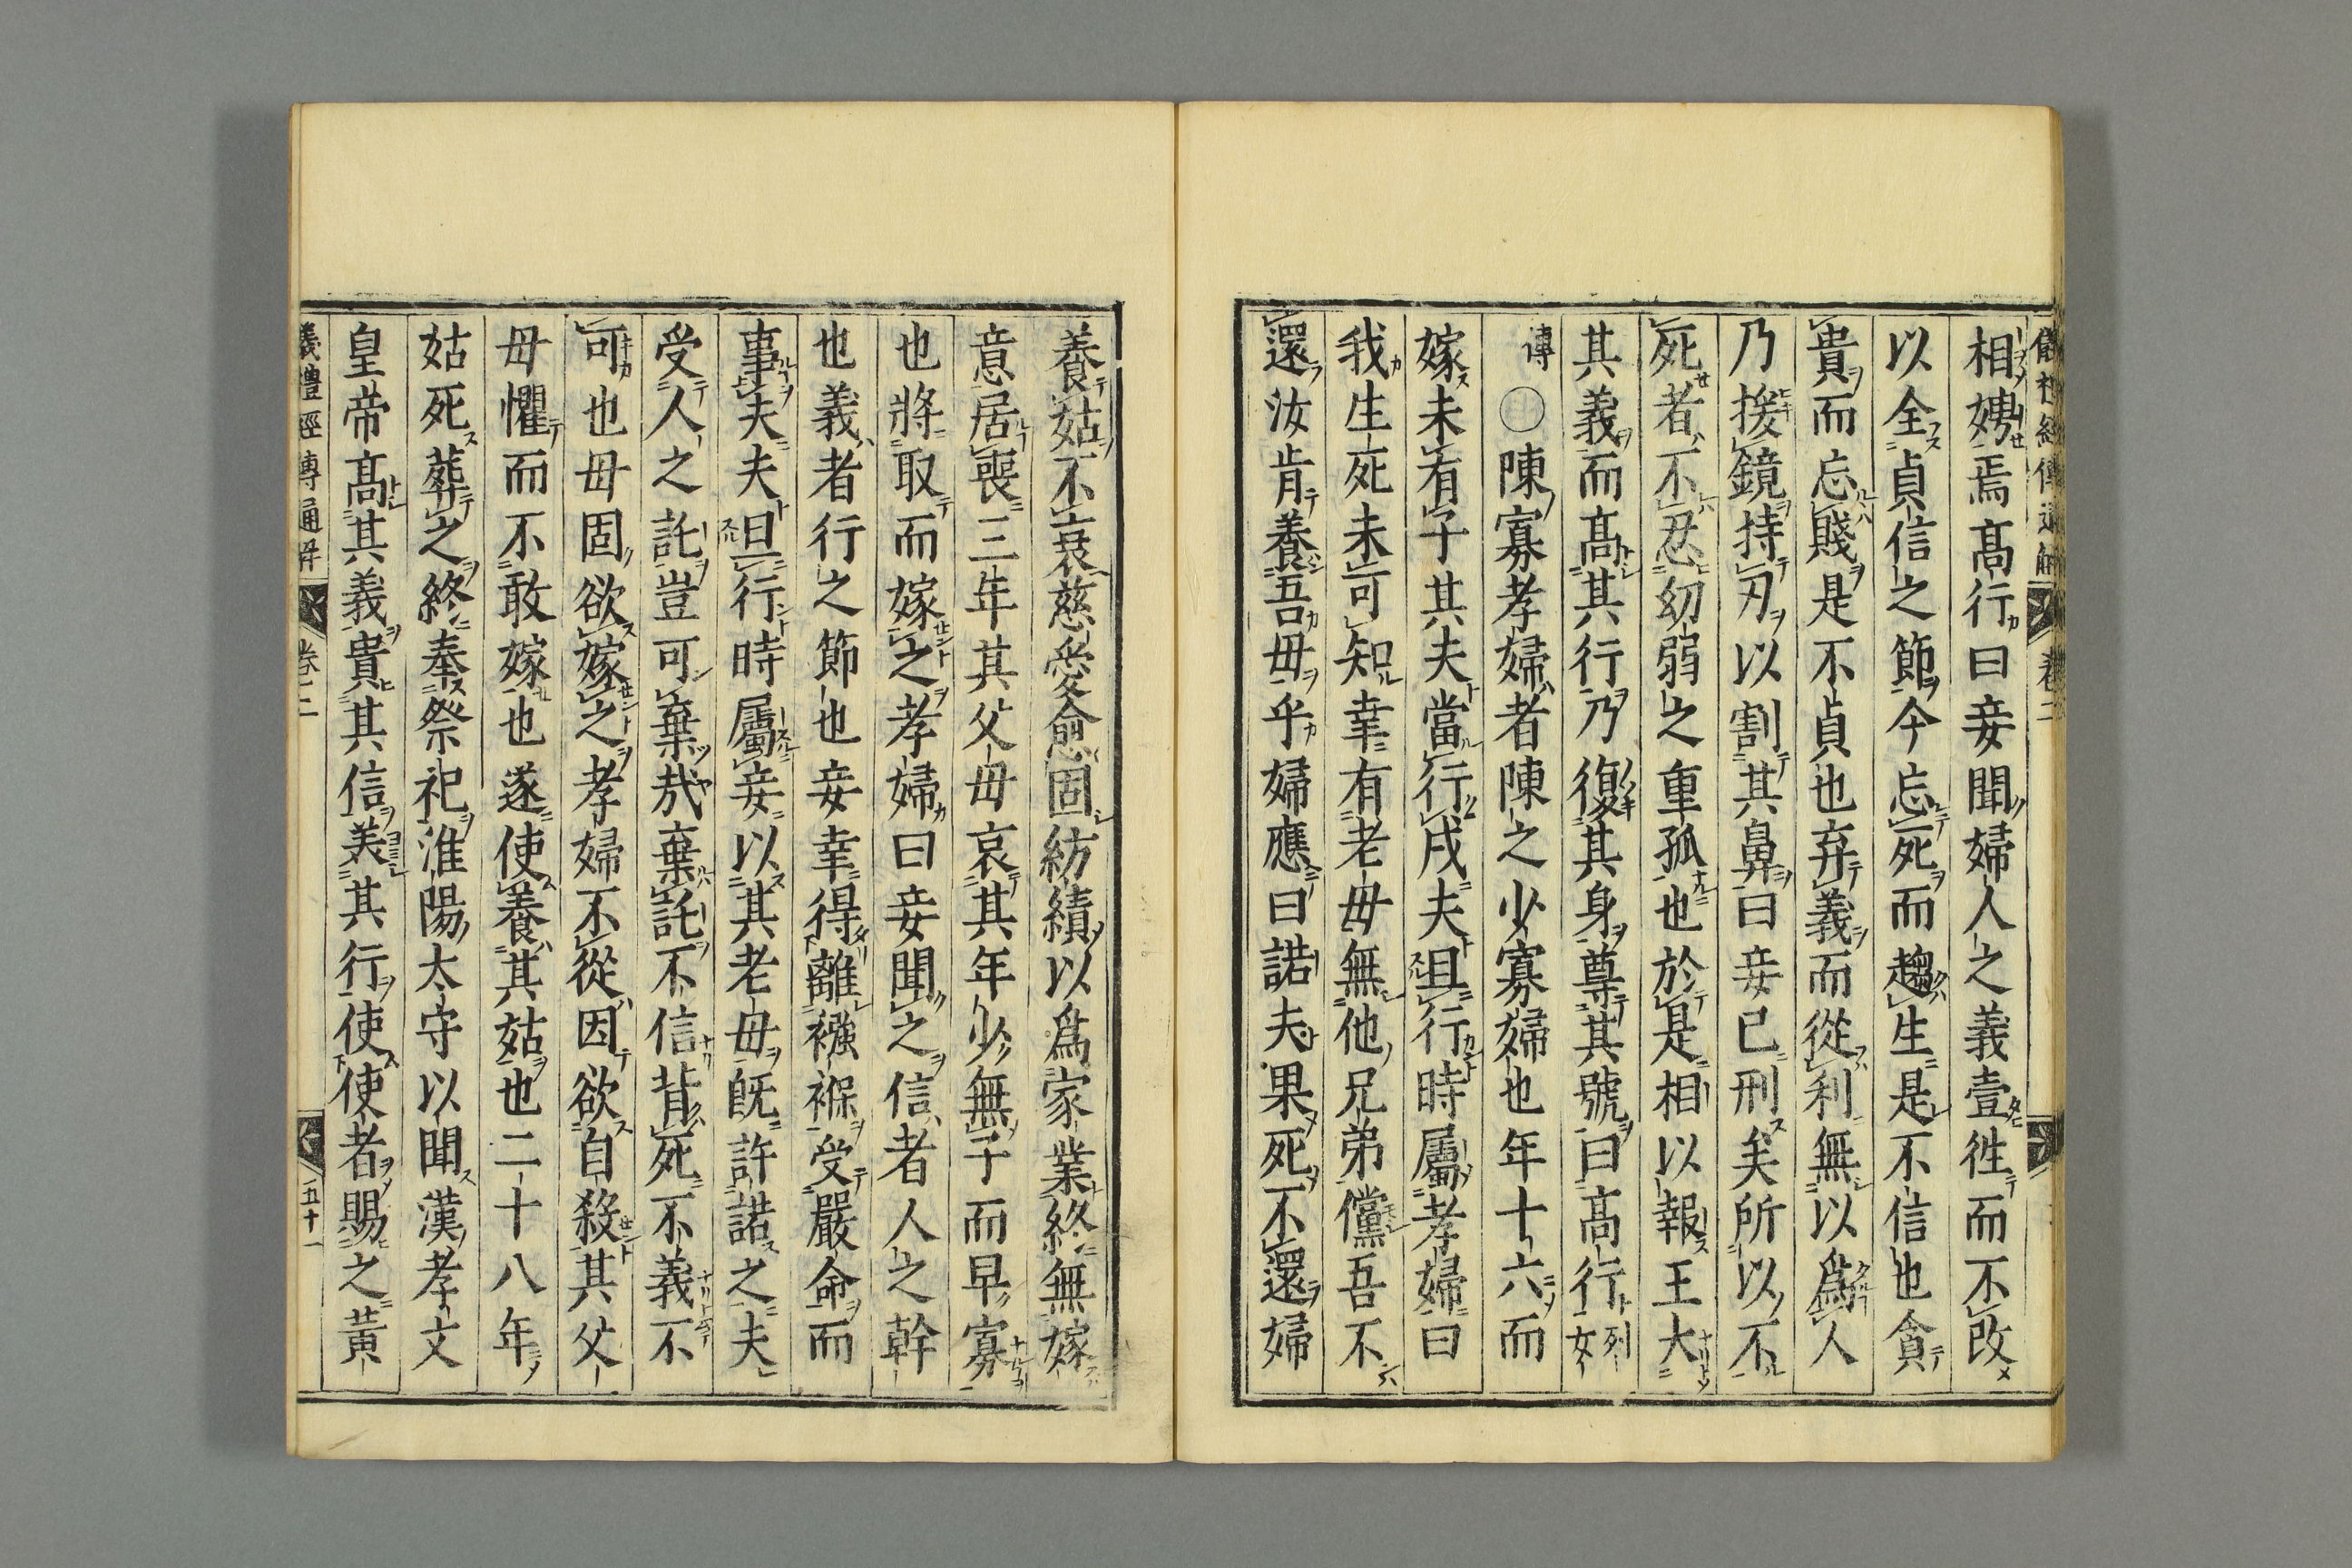 儀禮經傳通解 卷二
相娉焉髙行曰妾聞婦人之義壹徃而不改
以全貞信之節今忘死而趨生是不信也貪
貴而忘賤是不貞也弃義而從利無以爲人
乃援鏡持刃以割其鼻曰妾已刑矣所以不
死者不忍幼弱之重孤也於是相以報王大
其義而髙其行乃復其身尊其號曰髙行列女
傳〇陳寡孝婦者陳之少寡婦也年十六而
嫁未有子其夫當行戍夫且行時屬孝婦曰
我生死未可知幸有老母無他兄弟儻吾不
還汝肯養吾母乎婦應曰諾夫果死不還婦
養姑不衰慈愛愈固紡績以爲家業終無嫁
意居喪三年其父母哀其年少無子而早寡
也將取而嫁之孝婦曰妾聞之信者人之幹
也義者行之節也妾幸得離襁褓受嚴命而
事夫夫且行時屬妾以其老母既許諾之夫
受人之託豈可棄哉棄託不信背死不義不
可也母固欲嫁之孝婦不從因欲自殺其父
母懼而不敢嫁也遂使養其姑也二十八年
姑死葬之終奉祭祀淮陽太守以聞漢孝文
皇帝髙其義貴其信美其行使使者賜之黃
儀禮經傳通解 卷二 五十一